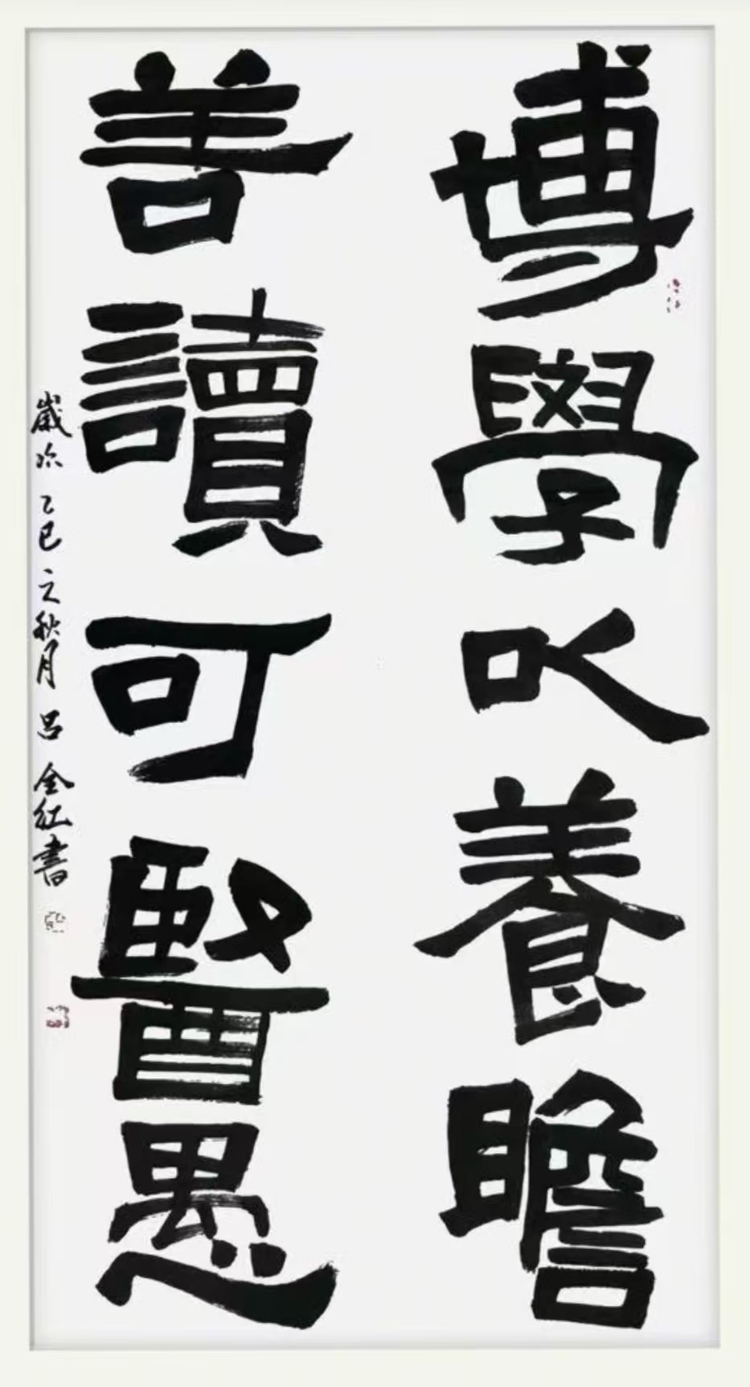 博學以養瞻
善讀可醫愚
歲次乙巳之秋月呂金紅書